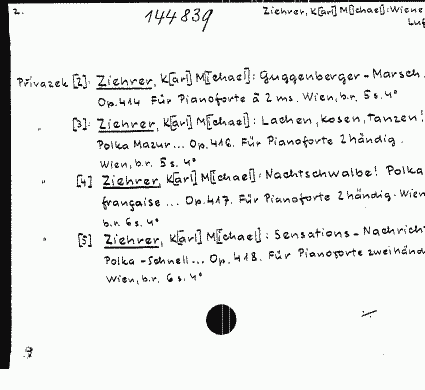 2. 144839 Ziehrer, K[arl] M[ichael]: Wiene
Přívazek [2]: Ziehrer, K[arl] M[ichael]: Guggenberger-Marsch.
Op. 414 Für Pianoforte à 2 ms. Wien, b.r. 5 s. 4°
" [3]: Ziehrer, K[arl] M[ichael]: Lachen, kosen, tanzen!
Polka Mazur... Op. 416. Für Pianoforte 2händig.
Wien, b.r. 5 s. 4°
" [4] Ziehrer, K[arl] M[ichael]: Nachtschwalbe! Polka
française ... Op. 417. Für Pianoforte 2händig. Wien
b.r. 6 s. 4°
" [5] Ziehrer, K[arl] M[ichael]: Sensations-Nachricht
Polka-Schnell... Op. 418. Für Pianoforte zweihänd
Wien, b.r. 6 s. 4°